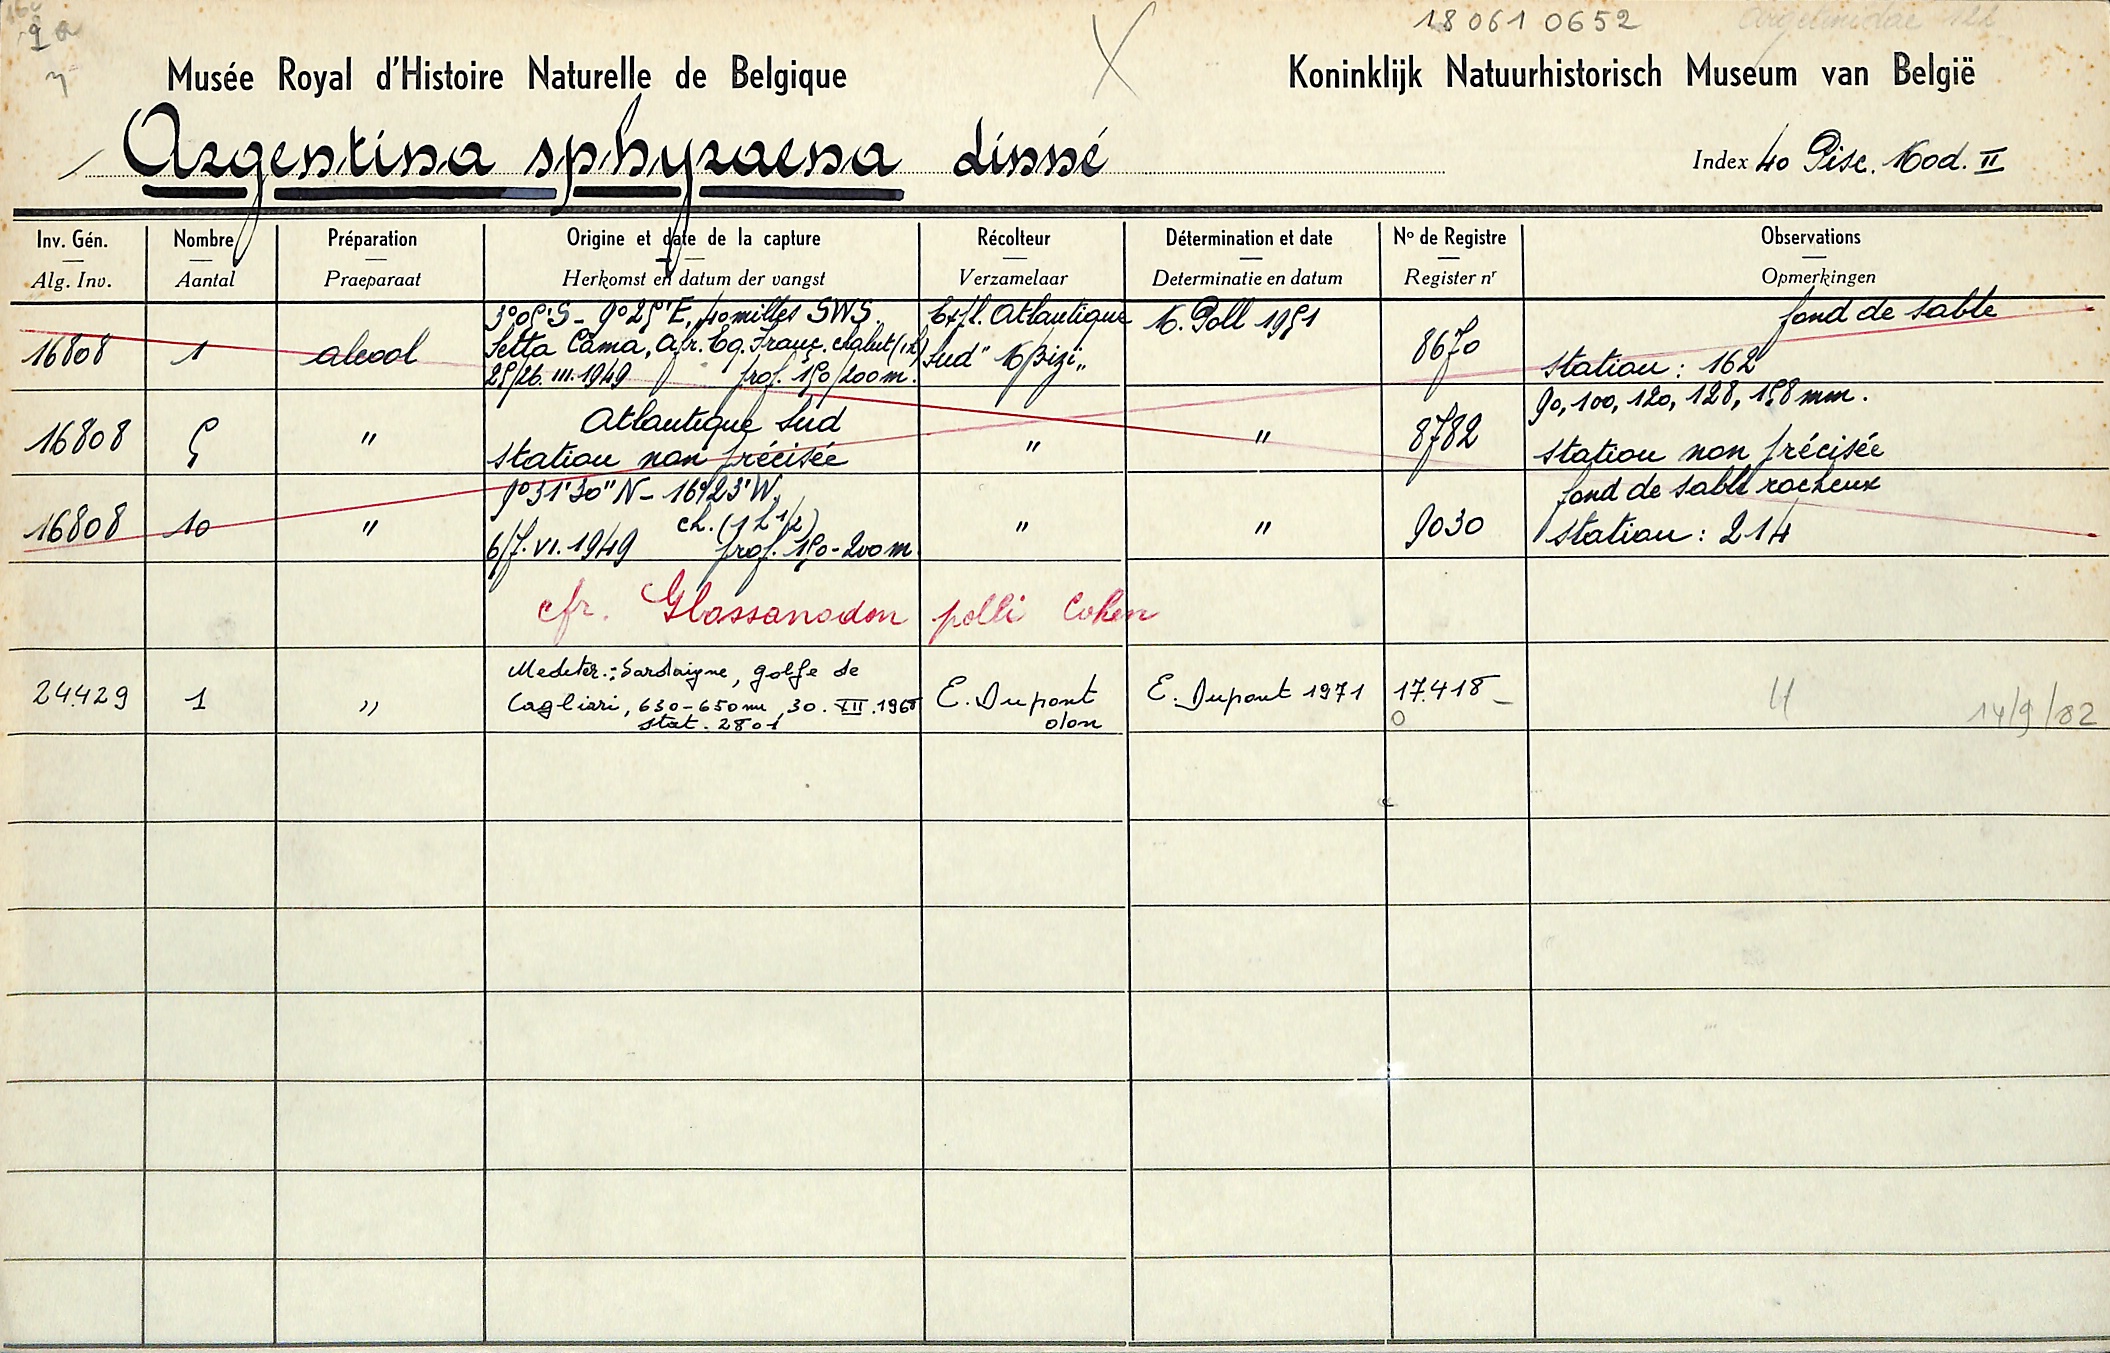 18 061 0652
Argentinidae 122
Musée Royal d'Histoire Naturelle de Belgique
Koninklijk Natuurhistorisch Museum van België
Argentina sphyraena Linné
Index 40 Pisc. Mod. II
Inv. Gén. Nombre Préparation Origine et date de la capture Récolteur Détermination et date No de Registre Observations
Alg. Inv. Aantal Praeparaat Herkomst en datum der vangst Verzamelaar Determinatie en datum Register nr Opmerkingen
3°05'S - 9°25'E, 40 milles SWS
Setta Cama, Afr. Eq. Franç. chalut (1h)
25/26.III.1949 prof. 150/200 m.
16808 1 alcool
Expl. Atlantique
Sud" Mbizi"
M. Poll 1951
8670
fond de sable
station : 162
16808 5 "
Atlantique Sud
station non précisée
" " 8782
90, 100, 120, 128, 158 mm.
station non précisée
9°31'30"N - 16°23'W,
ch. (1 h 1/2)
6/7.VI.1949 prof. 150-200 m.
16808 10 "
" " 9030
fond de sable rocheux
station : 214
cfr. Glossanodon polli Cohen
24.429 1 "
Mediter.: Sardaigne, golfe de
Cagliari, 630-650 m, 30.VII.1968
stat. 2801
E. Dupont
don
E. Dupont 1971
17.418 -
O
14/9/82